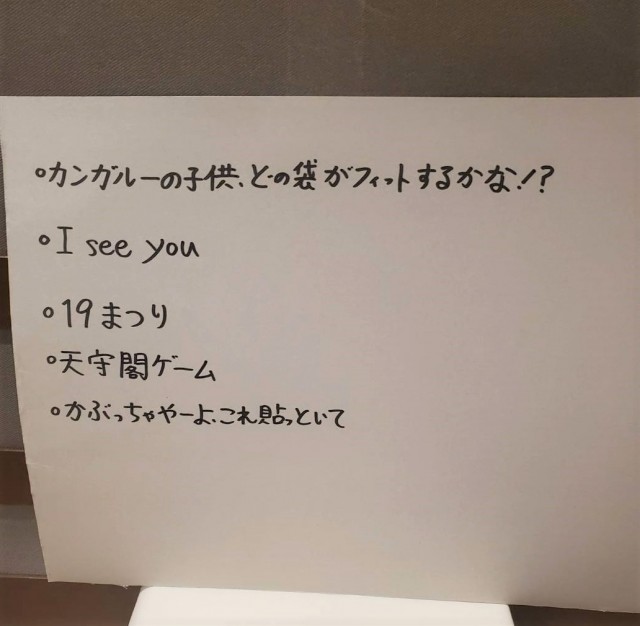 ○カンガルーの子供、どの袋がフィットするかな!?
○I see you
○19まつり
○天守閣ゲーム
○かぶっちゃやーよ、これ貼っといて